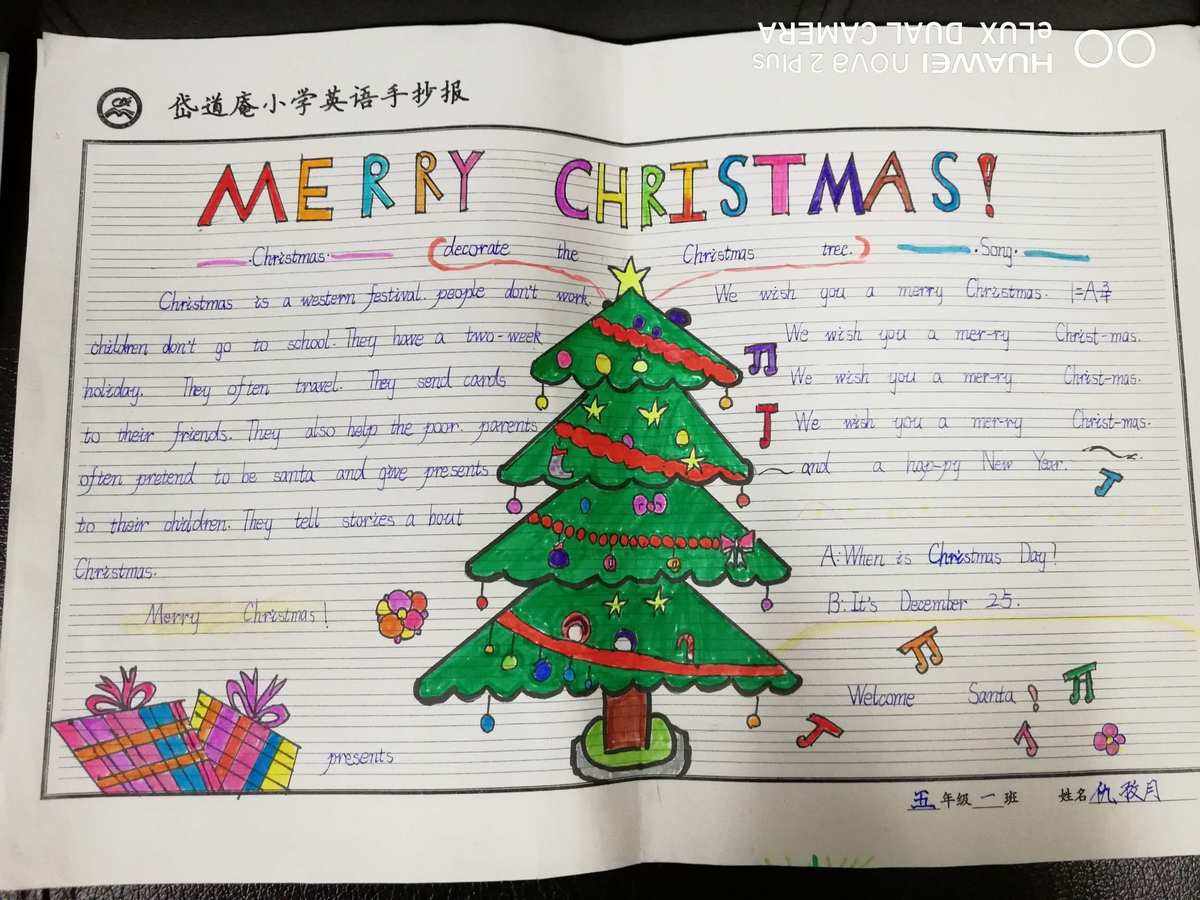 HUAWEI nova 2 Plus
eLUX DUAL CAMERA
岱道庵小学英语手抄报
MERRY CHRISTMAS!
·Christmas·
decorate the Christmas tree.
·Song·
Christmas is a western festival. people don't work.
children don't go to school. They have a two-week
holiday. They often travel. They send cards
to their friends. They also help the poor. parents
often pretend to be santa and give presents
to their children. They tell stories a bout
Christmas.
Merry Christmas!
presents
We wish you a merry Christmas. 1=A 3/4
We wish you a mer-ry Christ-mas.
We wish you a mer-ry Christ-mas.
We wish you a mer-ry Christ-mas.
and a hap-py New Year.
A: When is Christmas Day?
B: It's December 25.
Welcome Santa!
五年级一班 姓名仇孜月